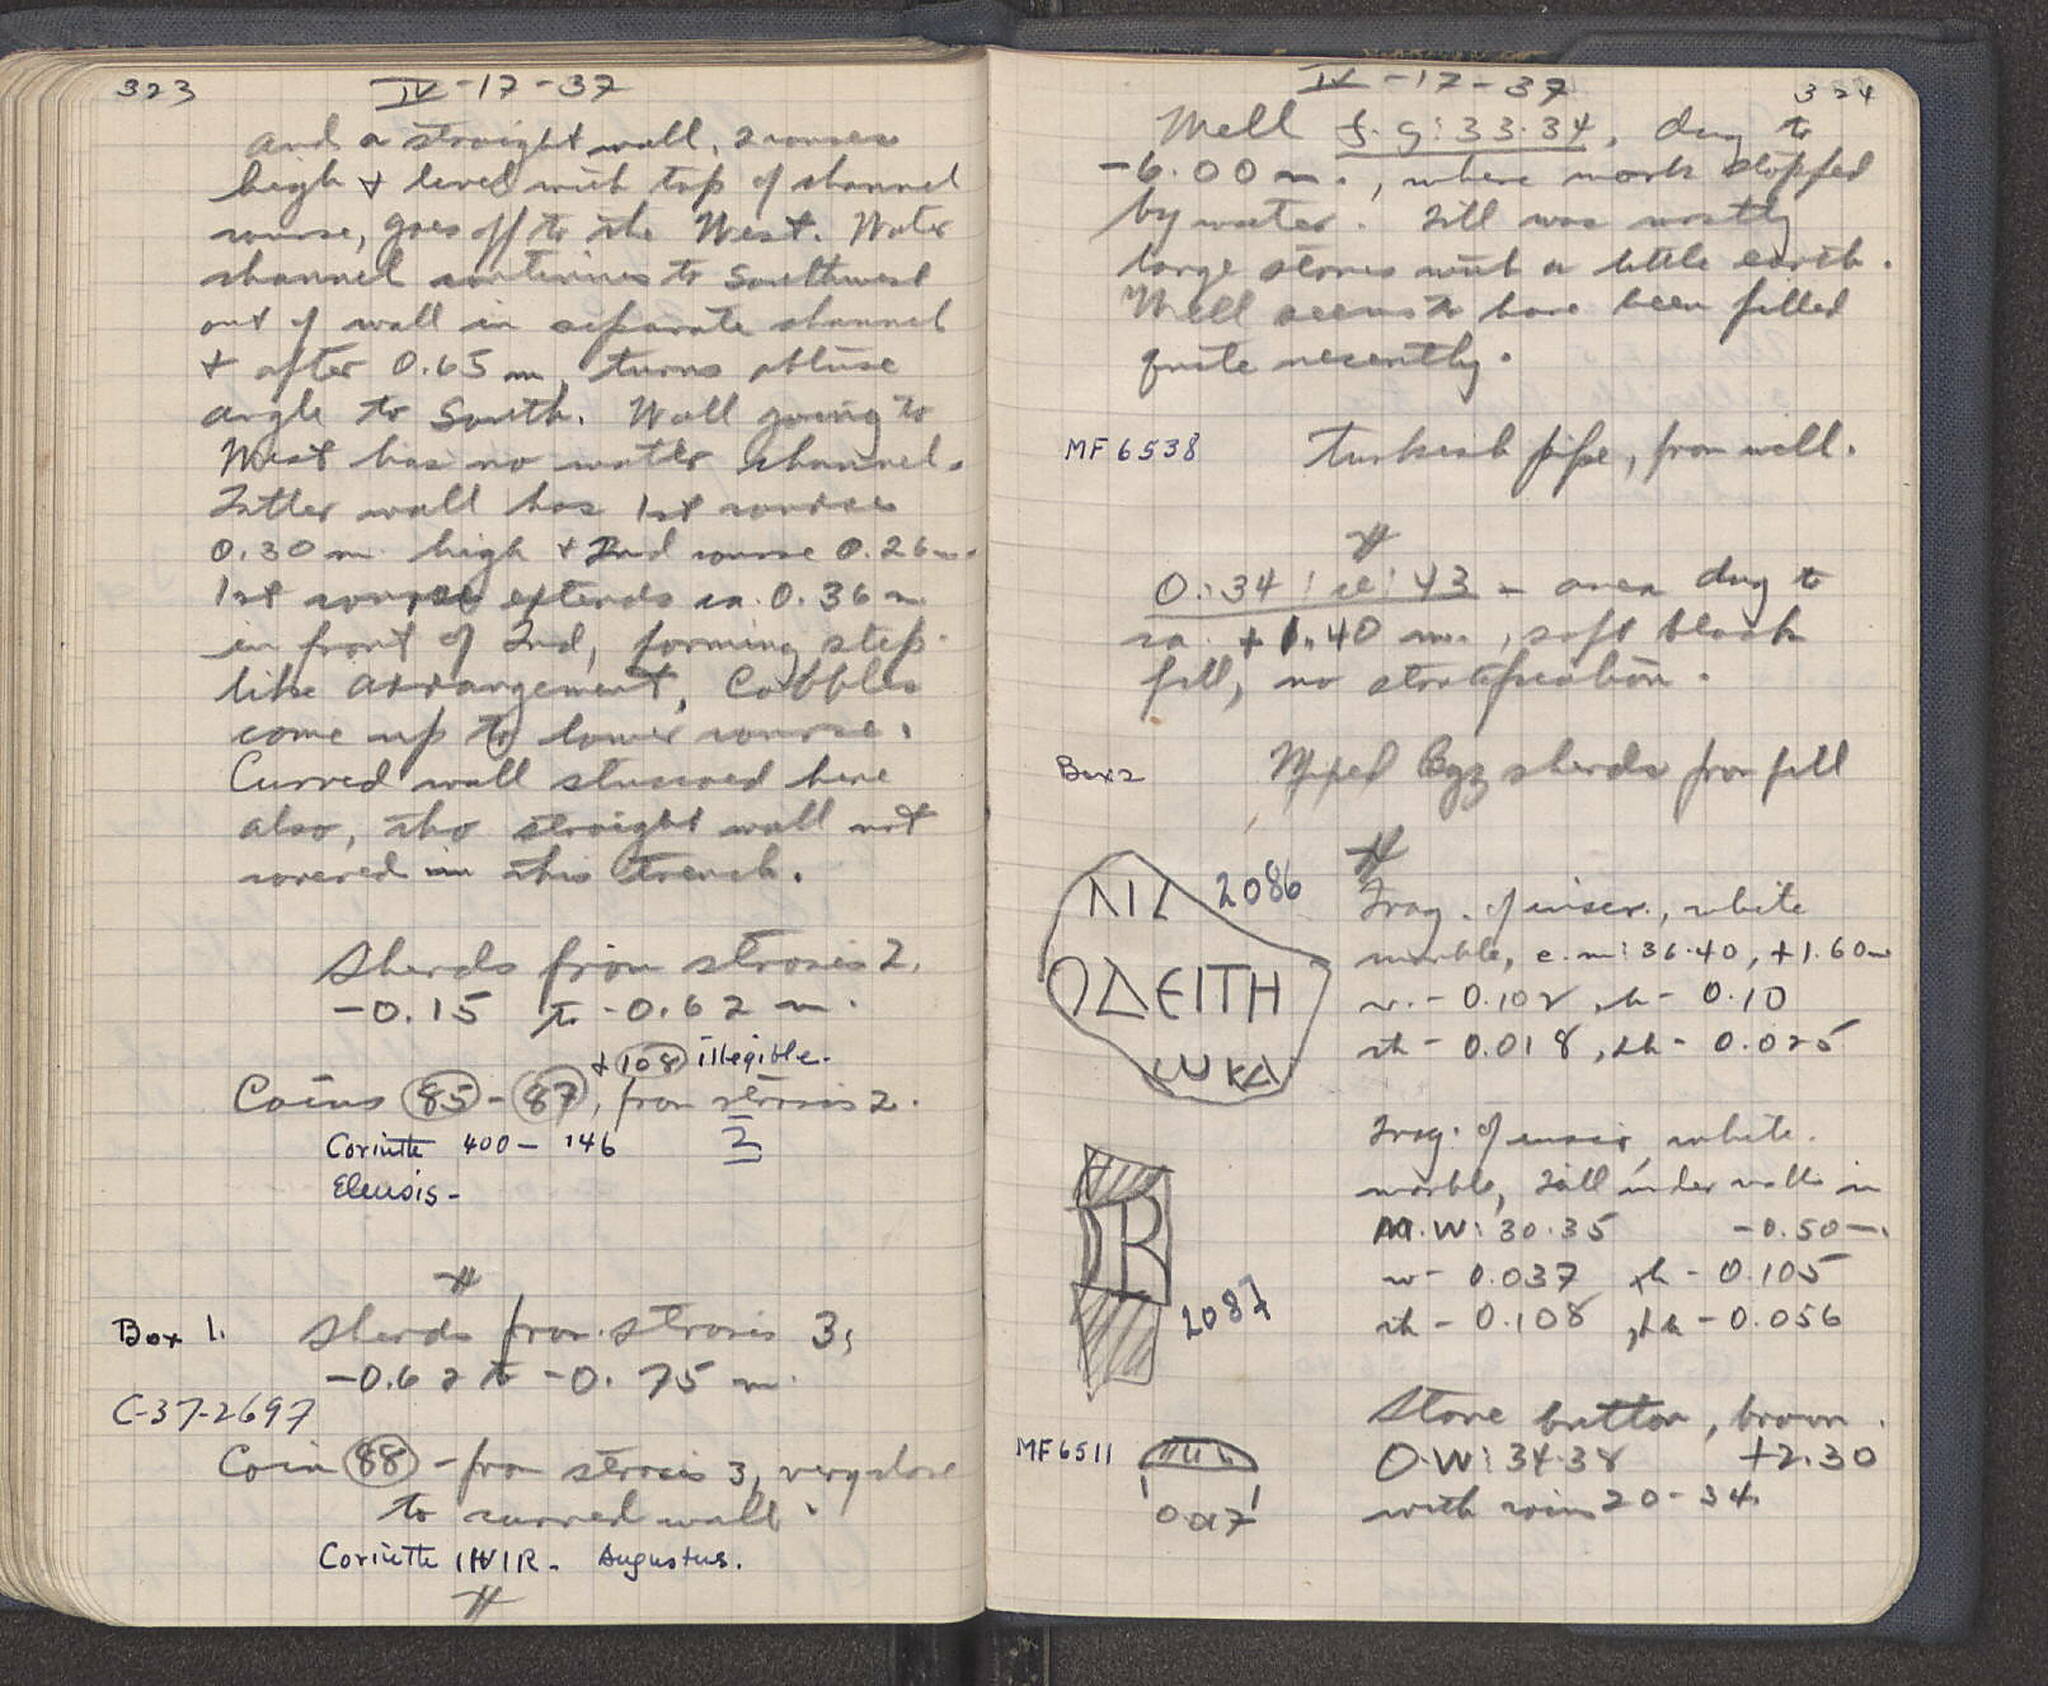 323
IV-17-37
and a straight wall, 2 courses
high + level with top of channel
course, goes off to the West. Water
channel continues to Southwest
out of wall in separate channel
+ after 0.65 m, turns obtuse
angle to South. Wall going to
West has no water channel.
Latter wall has 1st courses
0.30 m. high + 2nd course 0.26 m.
1st course extends ca. 0.36 m
in front of 2nd, forming step-
like arrangement, Cobbles
come up to lower course.
Curved wall stuccoed here
also, tho straight wall not
covered in this trench.
Sherds from strosis 2,
-0.15 to -0.62 m.
+ 108 illegible.
Coins 85 - 87, from strosis 2.
Corinth 400 - 146 I
Eleusis -
#
Box 1. Sherds from strosis 3,
-0.62 to -0.75 m.
C-37-2697
Coin 88 - from strosis 3, very close
to curved wall.
Corinth IIVIR. Augustus.
#
IV-17-37
324
Well f.g:33.34, dug to
-6.00 m., where work stopped
by water. Fill was mostly
large stones with a little earth.
Well seems to have been filled
quite recently.
MF 6538 Turkish pipe, from well.
#
O:34 : :43 - area dug to
ca. +1.40 m., soft black
fill, no stratification.
Box 2 Mixed Byz sherds from fill
#
2086
ΟΔΕΙΤΗ
Frag. of inscr., white
marble, e.m:36.40, +1.60 m
w. - 0.102, h - 0.10
th - 0.018, lh - 0.025
2087
Frag. of inscr, white
marble, Fill under walls in
M.W:30.35 -0.50 m.
w - 0.037 h - 0.105
th - 0.108, lh - 0.056
MF 6511
0.017
Stone button, brown.
O.W:34.38 +2.30
with coins 20-34.